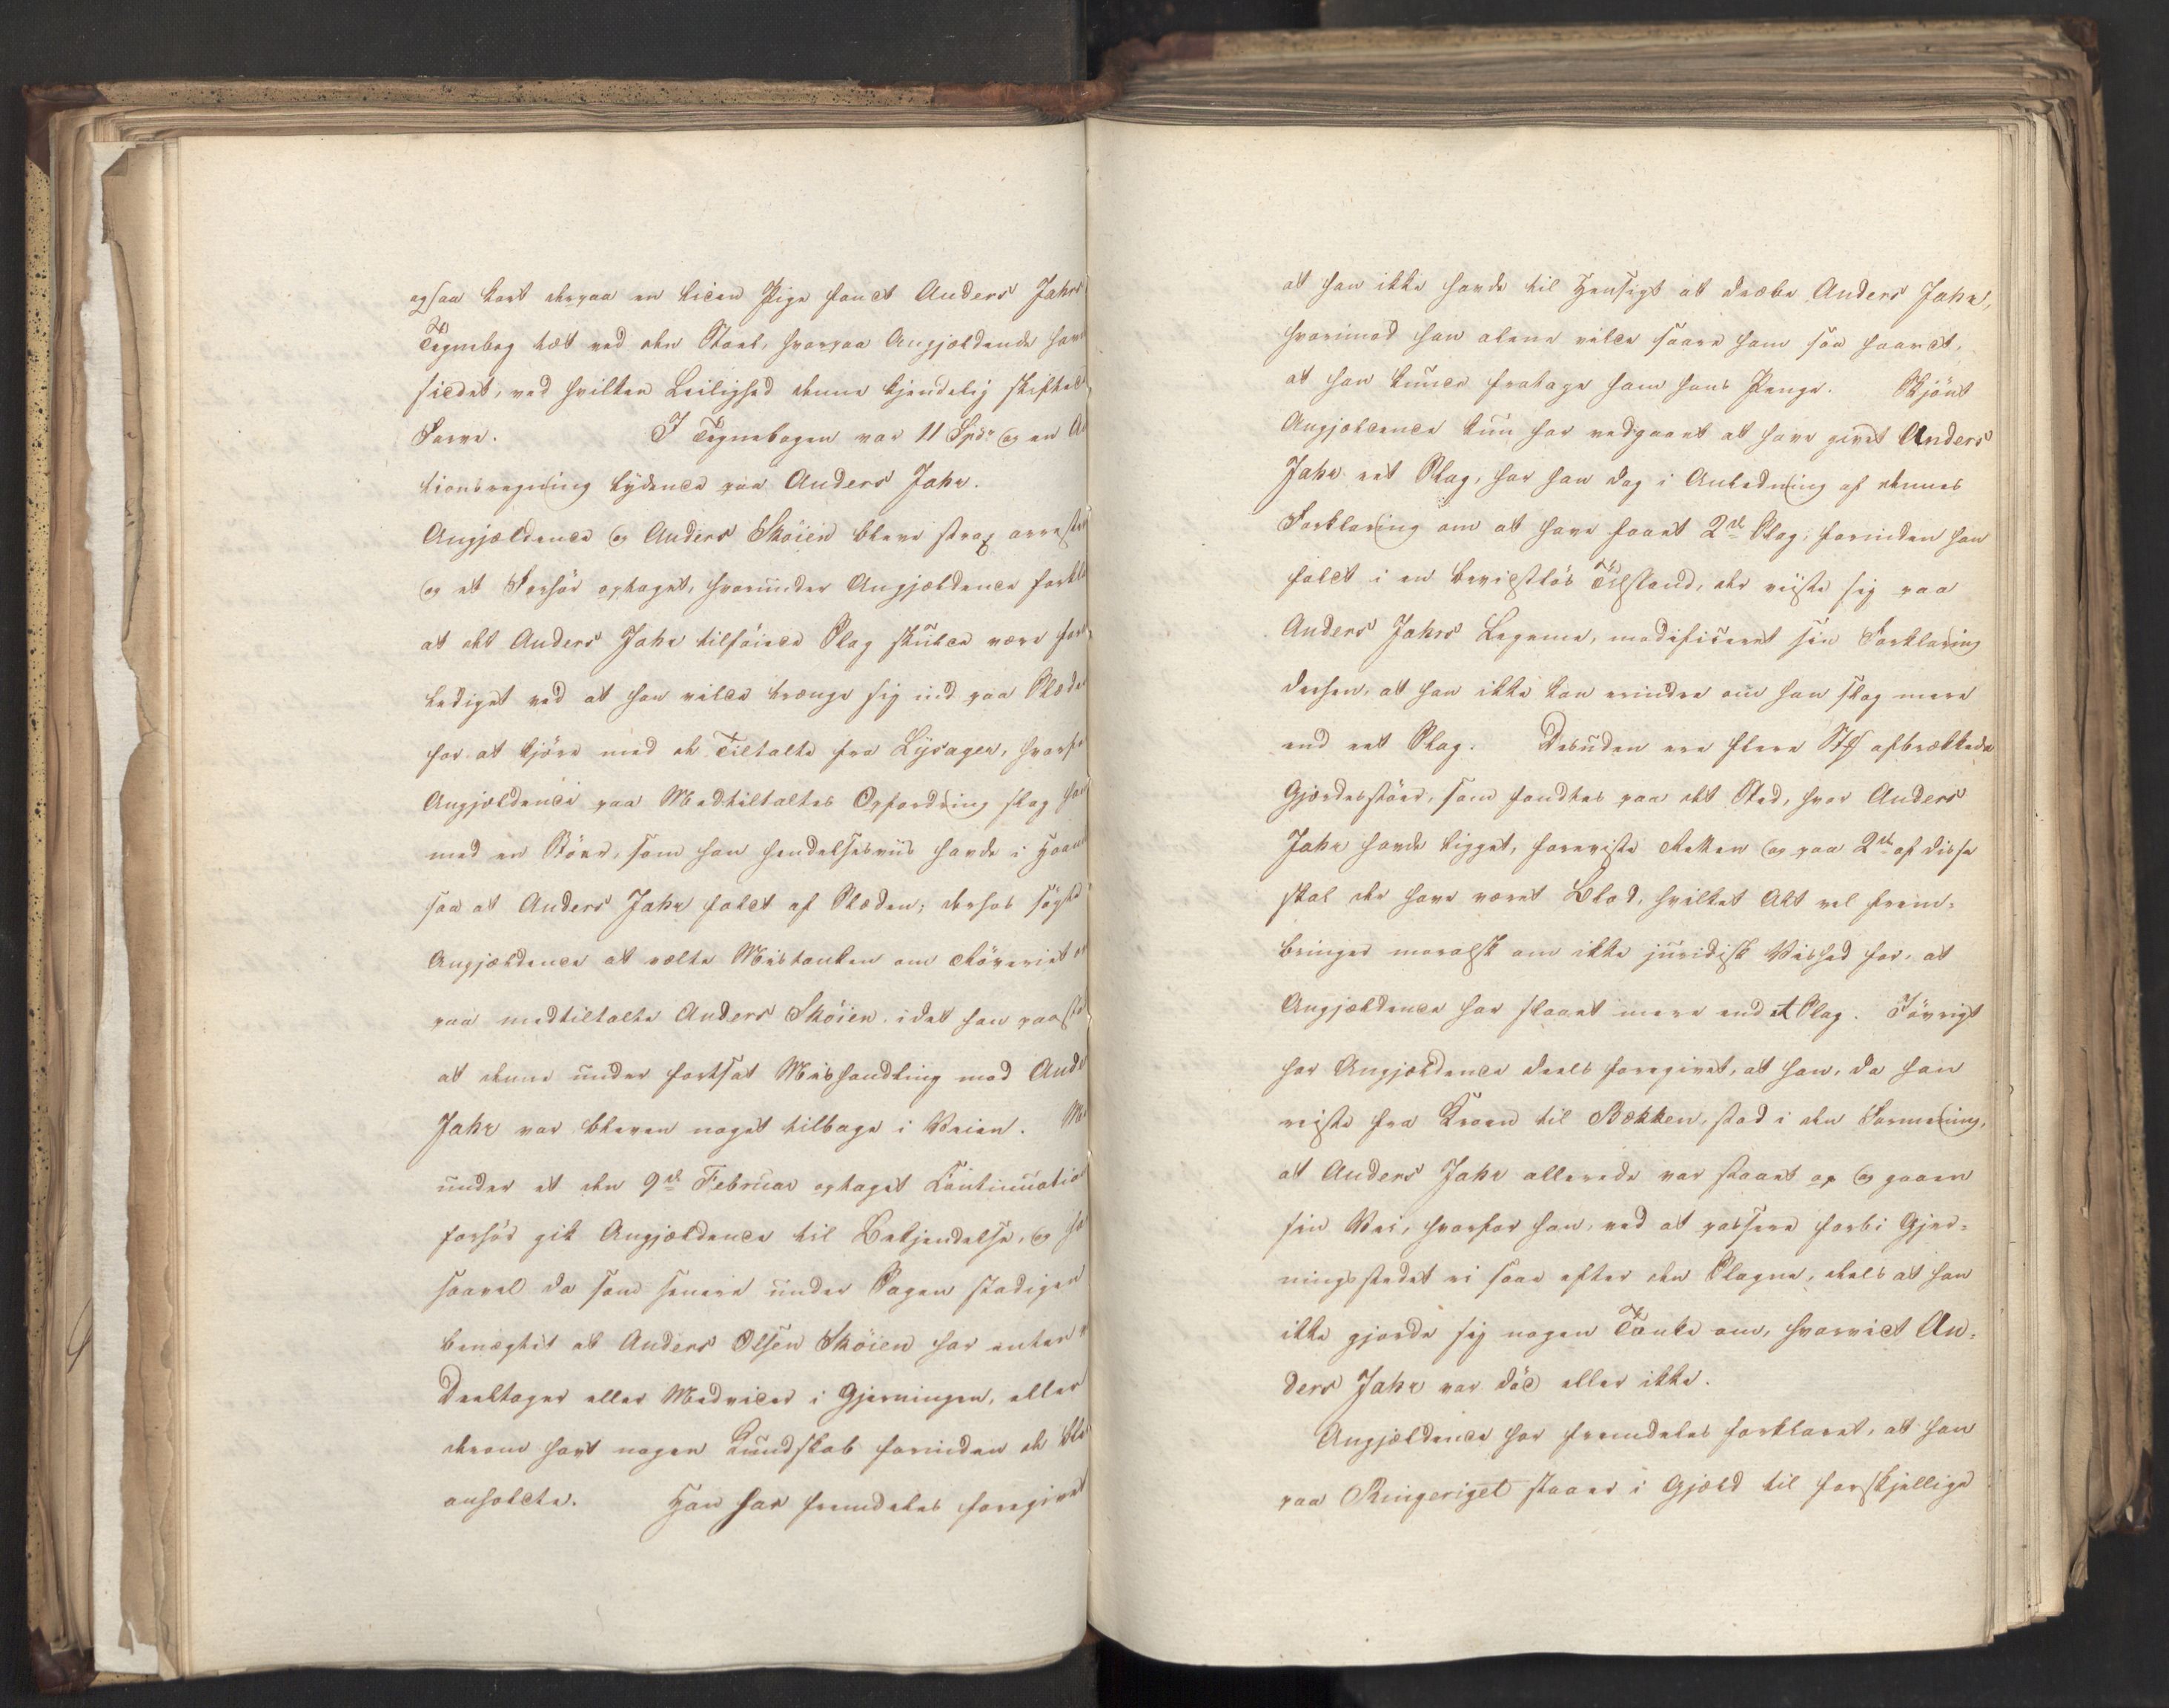 ogsaa kort derpaa en liden Pige fandt Anders Jahrs
Tegnebog tæt ved den Stoel, hvorpaa Angjældende havde
siddet, ved hvilken Leilighed denne kjendelig skiftede
Farve. I Tegnebogen var 11 Spdr og en
tionsregning lydende paa Anders Jahr.
Angjældende og Anders Skøien bleve strax arrest
og et Forhør optaget, hvorunder Angjældende forkla
at det Anders Jahr tilføiede Slag skulde være for
lediget ved at han vilde trænge sig ind paa Slæden
for at kjøre med de Tiltalte fra Lysager, hvorfor
Angjældende paa Medtiltaltes Opfordring slog ham
med en Stöer, som han hendelsesviis havde i Haand
saa at Anders Jahr faldt af Slæden; derhos søgte
Angjældende at vælte Mistanken om Røveriet
paa medtiltalte Anders Skøien, idet han paastod
at denne under fortsat Mishandling mod Anders
Jahr var bleven noget tilbage i Veien.
under et den 9de Februar optaget Continuations
forhør gik Angjældende til Bekjendelse, og har
saavel da som senere under Sagen stadigen
benægtet at Anders Olsen Skøien har enten
Deeltager eller Medvider i Gjerningen, eller
derom havt nogen Kundskab forinden de ble
anholdte. Han har fremdeles foregivet
at han ikke havde til Hensigt at dræbe Anders Jahr,
hvorimod han alene vilde saare ham saa haardt,
at han kunde fratage ham hans Penge. Skjönt
Angjældende kun har vedgaaet at have givet Anders
Jahr eet Slag, har han dog i Anledning af dennes
Forklaring om at have faaet 2de Slag, forinden han
faldt i en bevidstløs Tilstand, der viiste sig paa
Anders Jahrs Legeme, modificeret sin Forklaring
derhen, at han ikke kan erindre om han slog mere
end eet Slag. Desuden ere flere Stk afbrækkede
Gjerdesstöer, som fandtes paa det Sted, hvor Anders
Jahr havde ligget, foreviste Retten og paa 2de af disse
skal der have været Blod, hvilket Alt vel frem-
bringer moralsk om ikke juridisk Vished for, at
Angjældende har slaaet mere end et Slag. Iøvrigt
har Angjældende deels foregivet, at han, da han
reiste fra Kroen til Bækken, stod i den Formening,
at Anders Jahr allerede var staaet op og gaaen
sin Vei, hvorfor han, ved at passere forbi Gjer-
ningsstedet ei saae efter den Slagne, deels at han
ikke gjorde sig nogen Tanke om, hvorvidt An-
ders Jahr var död eller ikke.
Angjældende har fremdeles forklaret, at han
paa Ringeriget staaer i Gjæld til forskjellige